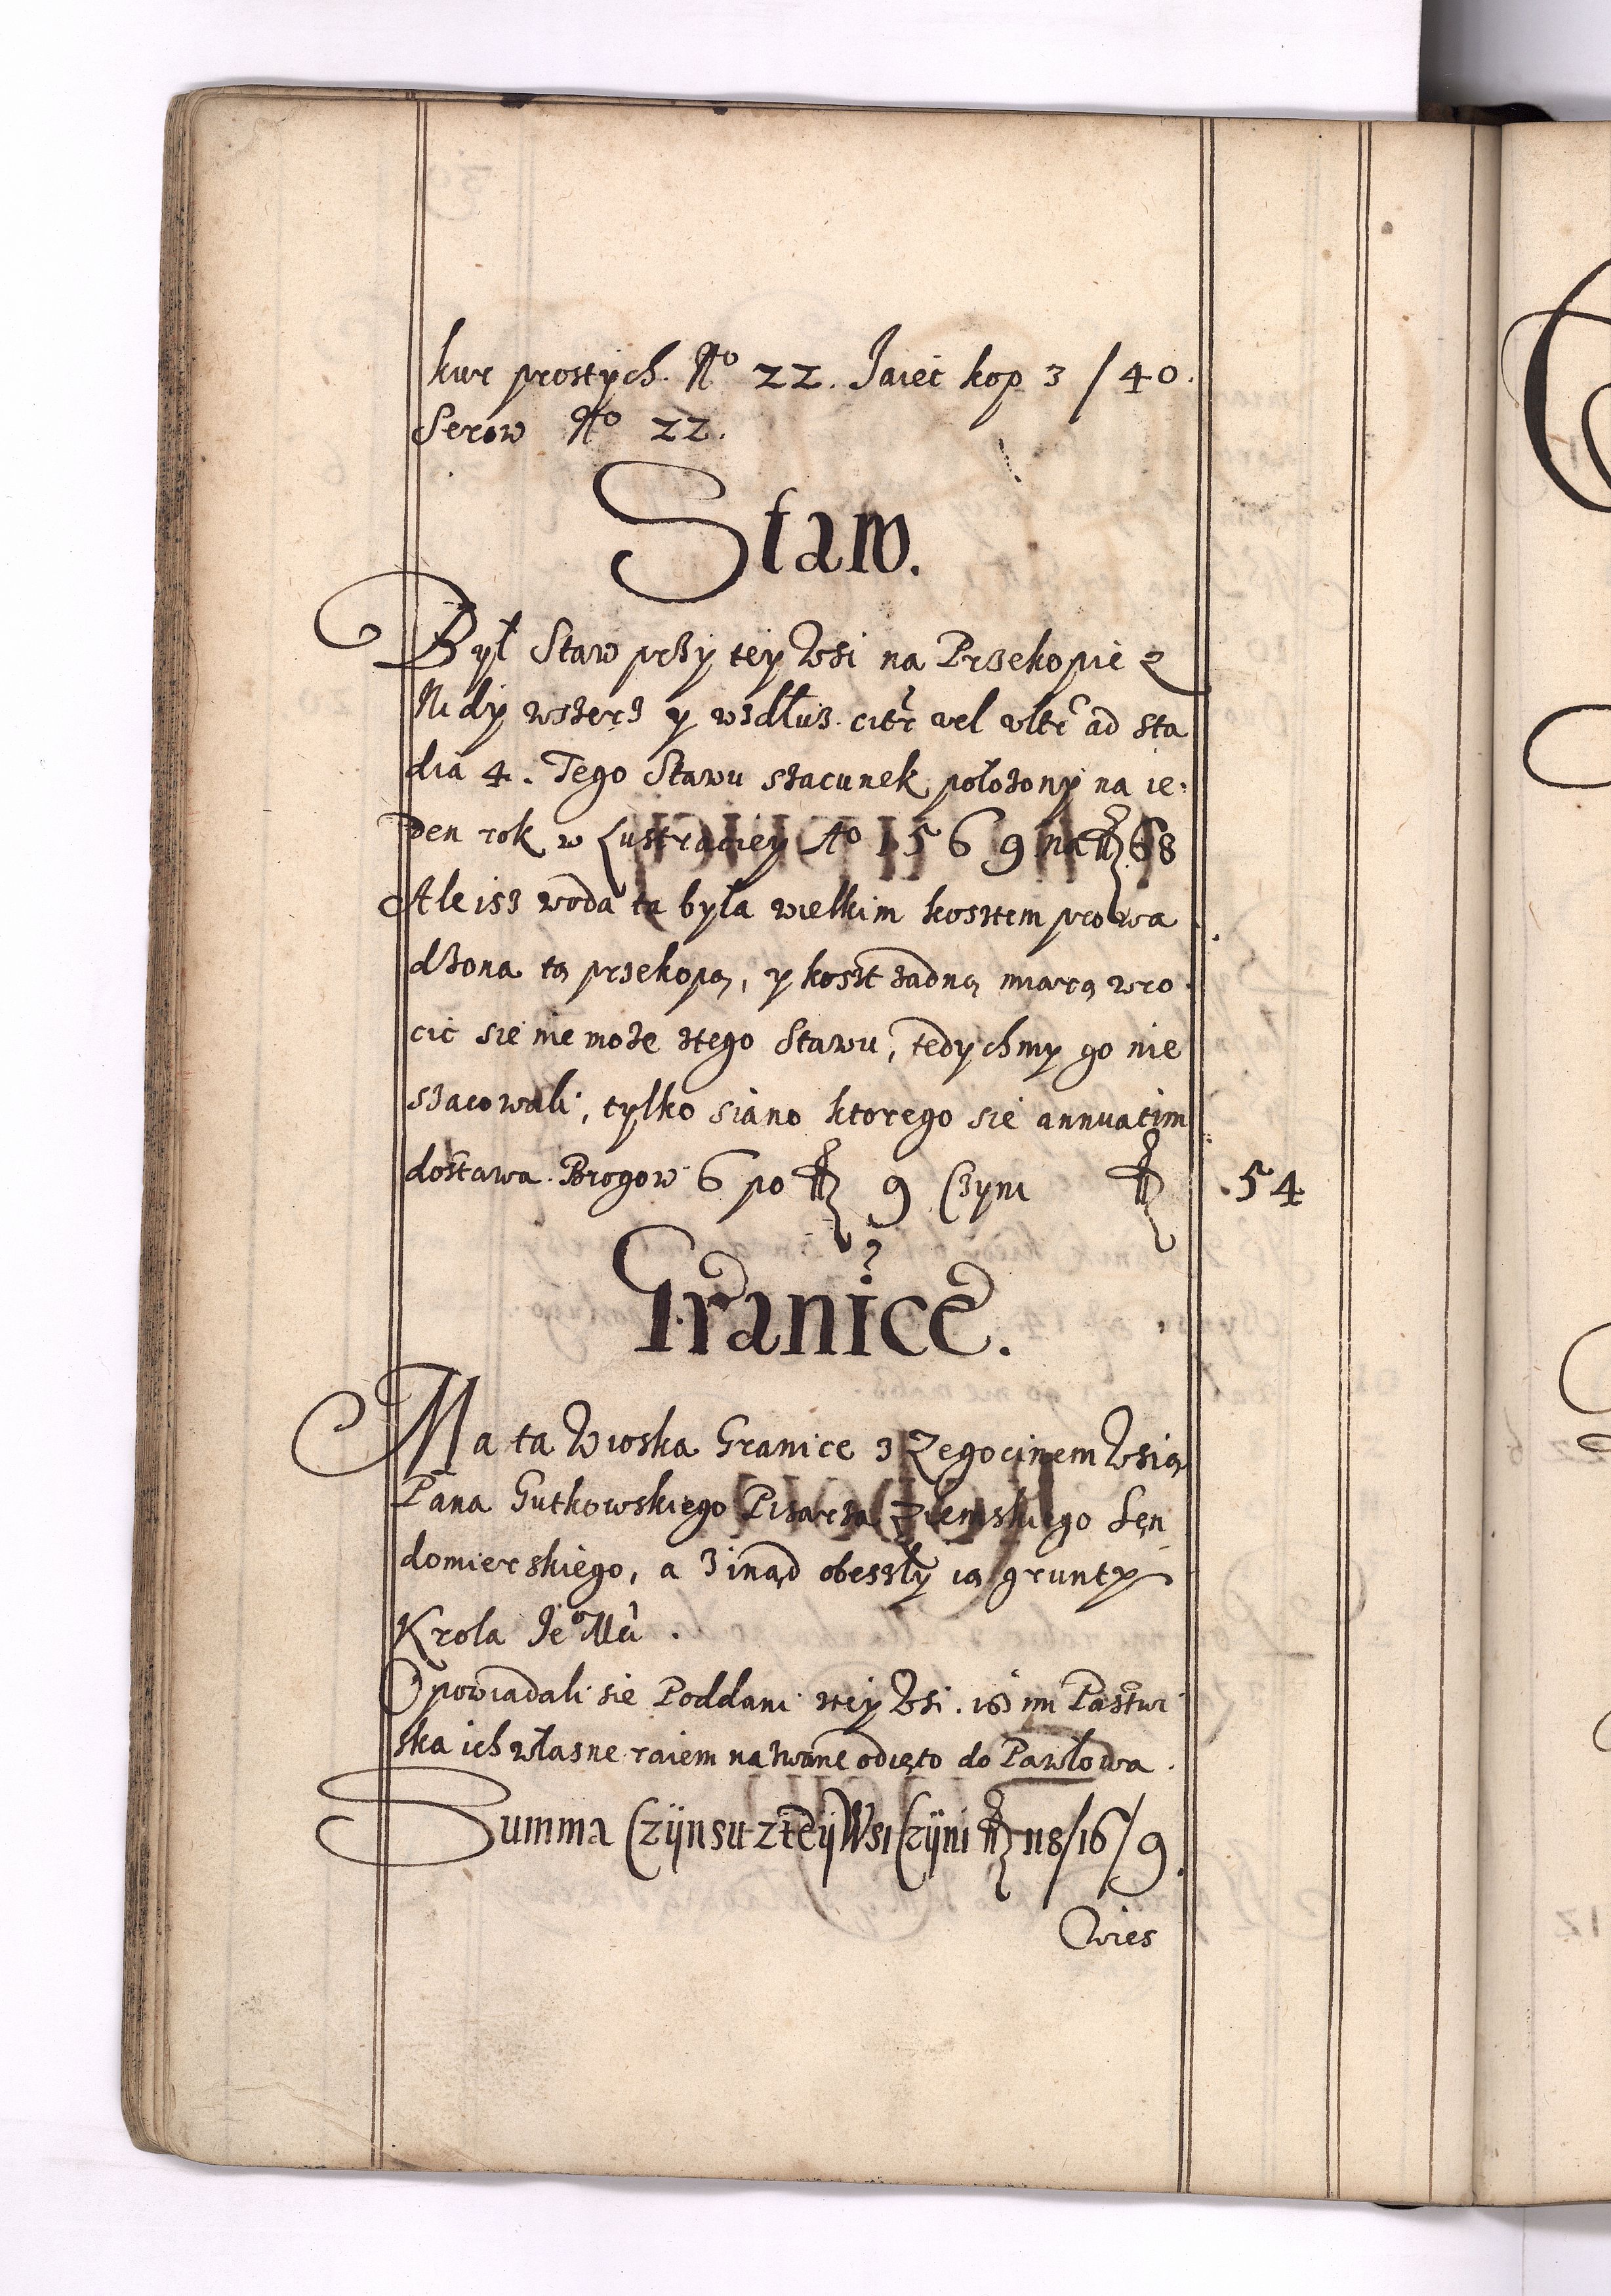 kur prostych. No 22. Jaiec kop 3 / 40.
Serow No 22.
Staw.
Był Staw przy tey Wsi na Przekopie z
Nidy wszerz y wzdłuz. citr vel vltr ad sta
dia 4. Tego Stawu szacunek połozony na ie:
den rok w Lustraciey Ao 1569 na fl 68
Ale isz woda ta była wielkim kosztem prowa
dzona tą przekopą, y koszt zadną miarą wro
cic sie nie moze ztego Stawu, tedychmy go nie
szacowali, tylko siano ktorego sie annuatim
dostawa. Brogow 6 po fl 9 Czyni fl .54
Granice.
Ma ta Wioska Granice z Zegocinem Wsią
Pana Gutkowskiego Pisarza Ziemskiego Sęn
domierskiego, a zinąd obeszły ią grunty
Krola Jeo Mci.
Opowiadali sie Poddani ztey Wsi. isz im Pastwi
ska ich własne odięto do Pawłowa.
Summa Czÿnsu z teÿ Wsi Czÿni fl 118/16/9.
Wies